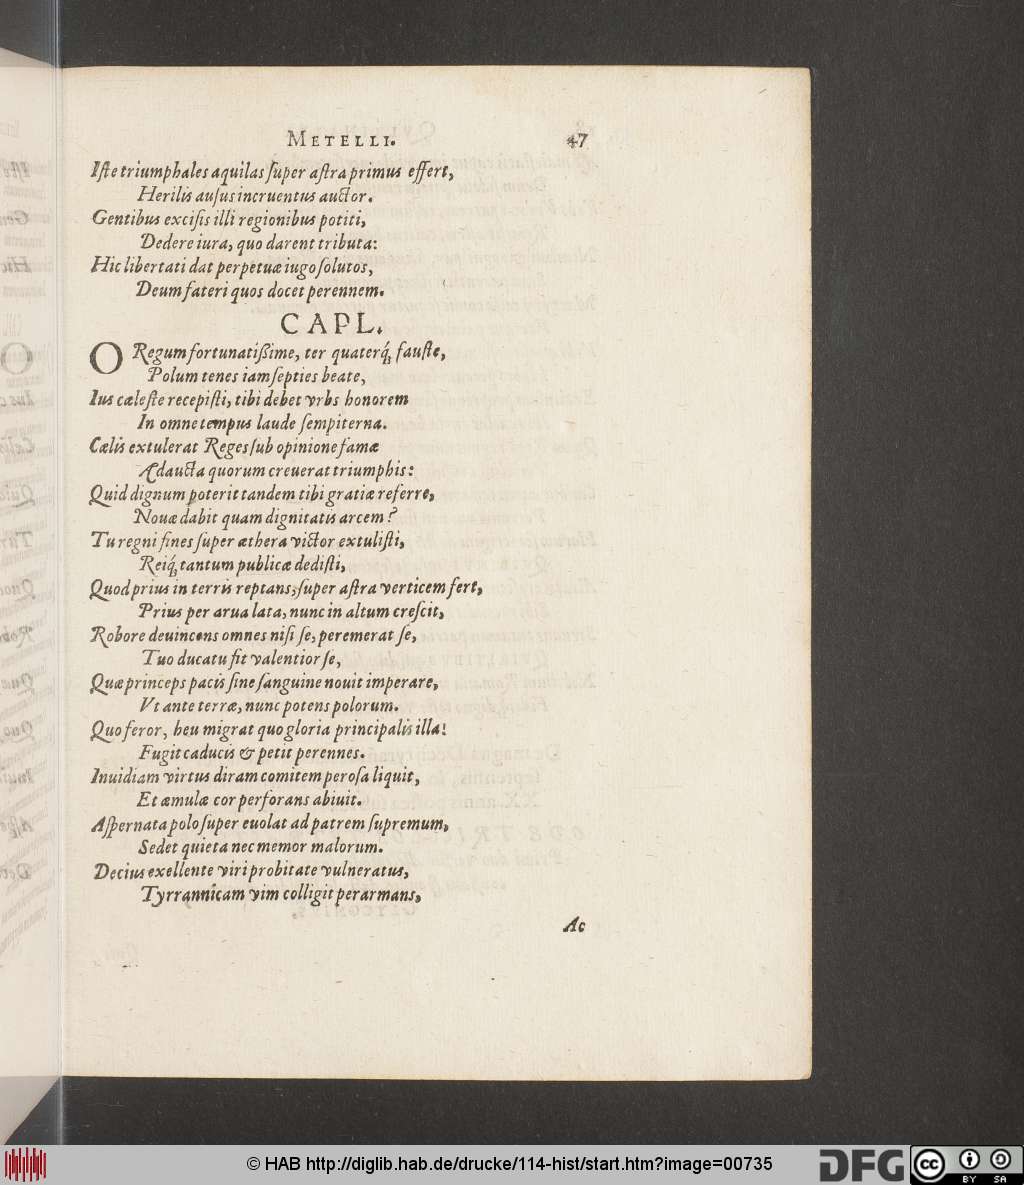 METELLI. 47
Iste triumphales aquilas super astra primus effert,
Herilis ausus incruentus auctor.
Gentibus excisis illi regionibus potiti,
Dedere iura, quo darent tributa:
Hic libertati dat perpetuæ iugo solutos,
Deum fateri quos docet perennem.
CAP L.
O Regum fortunatißime, ter quaterq́; fauste,
Polum tenes iam septies beate,
Ius cæleste recepisti, tibi debet vrbs honorem
In omne tempus laude sempiterna.
Cælis extulerat Reges sub opinione famæ
Ædaucta quorum creuerat triumphis:
Quid dignum poterit tandem tibi gratiæ referre,
Nouæ dabit quam dignitatis arcem?
Tu regni fines super æthera victor extulisti,
Reiq́; tantum publicæ dedisti,
Quod prius in terris reptans, super astra verticem fert,
Prius per arua lata, nunc in altum crescit,
Robore deuincens omnes nisi se, peremerat se,
Tuo ducatu fit valentior se,
Quæ princeps pacis sine sanguine nouit imperare,
Vt ante terræ, nunc potens polorum.
Quo feror, heu migrat quo gloria principalis illa!
Fugit caducis & petit perennes.
Inuidiam virtus diram comitem perosa liquit,
Et æmulæ cor perforans abiuit.
Aspernata polo super euolat ad patrem supremum,
Sedet quieta nec memor malorum.
Decius exellente viri probitate vulneratus,
Tyrrannicam vim colligit perarmans,
Ac
© HAB http://diglib.hab.de/drucke/114-hist/start.htm?image=00735
DFG
cc BY SA